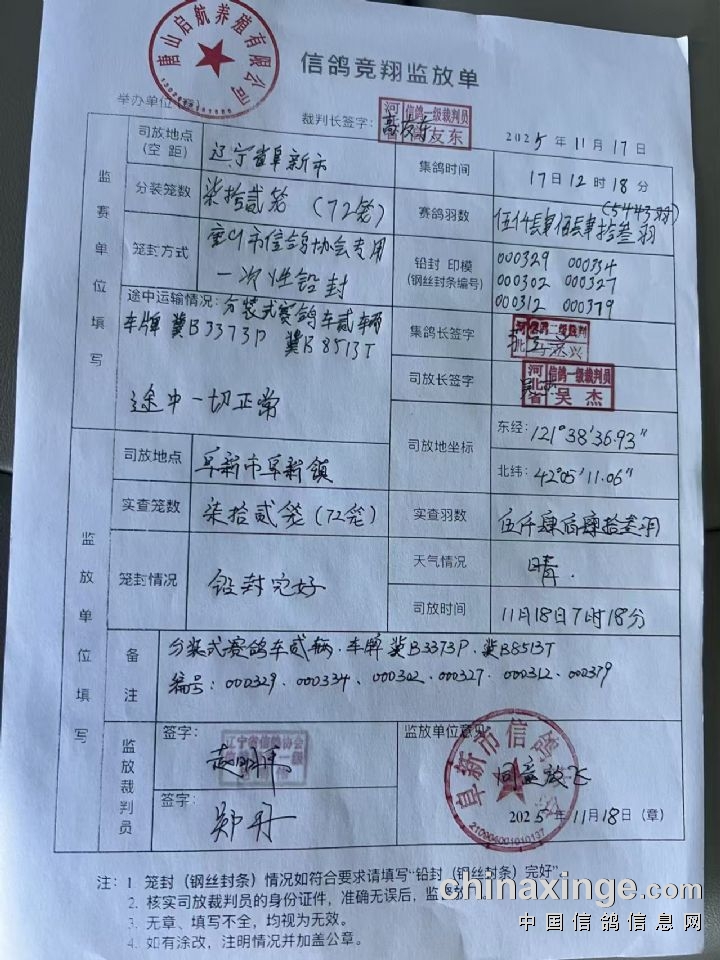 唐山启航养殖有限公司
信鸽竞翔监放单
举办单位（章）
裁判长签字：
河 信鸽一级裁判员
友东
2025年11月17日
监赛单位填写
司放地点（空距） 辽宁省阜新市
集鸽时间 17日12时18分
分装笼数 柒拾贰笼（72笼）
赛鸽羽数 伍仟肆佰肆拾叁羽（5443羽）
笼封方式 市信鸽协会专用一次性铅封
铅封 印模（钢丝封条编号）
000329 000334
000302 000327
000312 000379
途中运输情况：分装式赛鸽车贰辆
车牌 冀B3373P 冀B8513T
途中一切正常
集鸽长签字
司放长签字
河北省 信鸽一级裁判员 吴杰
司放地坐标
东经：121°38'36.93"
北纬：42°05'11.06"
监放单位填写
司放地点 阜新市阜新镇
实查笼数 柒拾贰笼（72笼）
实查羽数 伍仟肆佰肆拾叁羽
笼封情况 铅封完好
天气情况 晴.
司放时间 11月18日7时18分
备注
分装式赛鸽车贰辆.车牌 冀B3373P.冀B8513T
编号：000329.000334.000302.000327.000312.000379
监放裁判员
签字：
辽宁省信鸽协会
签字：郑丹
监放单位意见：
同意放飞
阜新市信鸽
2025年11月18日（章）
注：1. 笼封（钢丝封条）情况如符合要求请填写“铅封（钢丝封条）完好”
2. 核实司放裁判员的身份证件，准确无误后，监
3. 无章、填写不全，均视为无效。
4. 如有涂改，注明情况并加盖公章。
chinaxinge.com
中国信鸽信息网